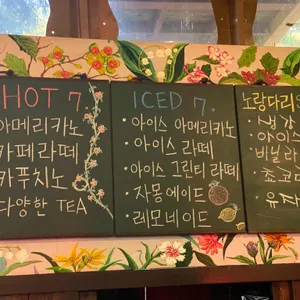 HOT 7.
아메리카노
카페라떼
카푸치노
다양한 TEA
ICED 7.
· 아이스 아메리카노
· 아이스 라떼
· 아이스 그린티 라떼
· 자몽에이드
· 레모네이드
노랑다리
· 생강
· 아이
· 바닐라
· 초코
· 유자